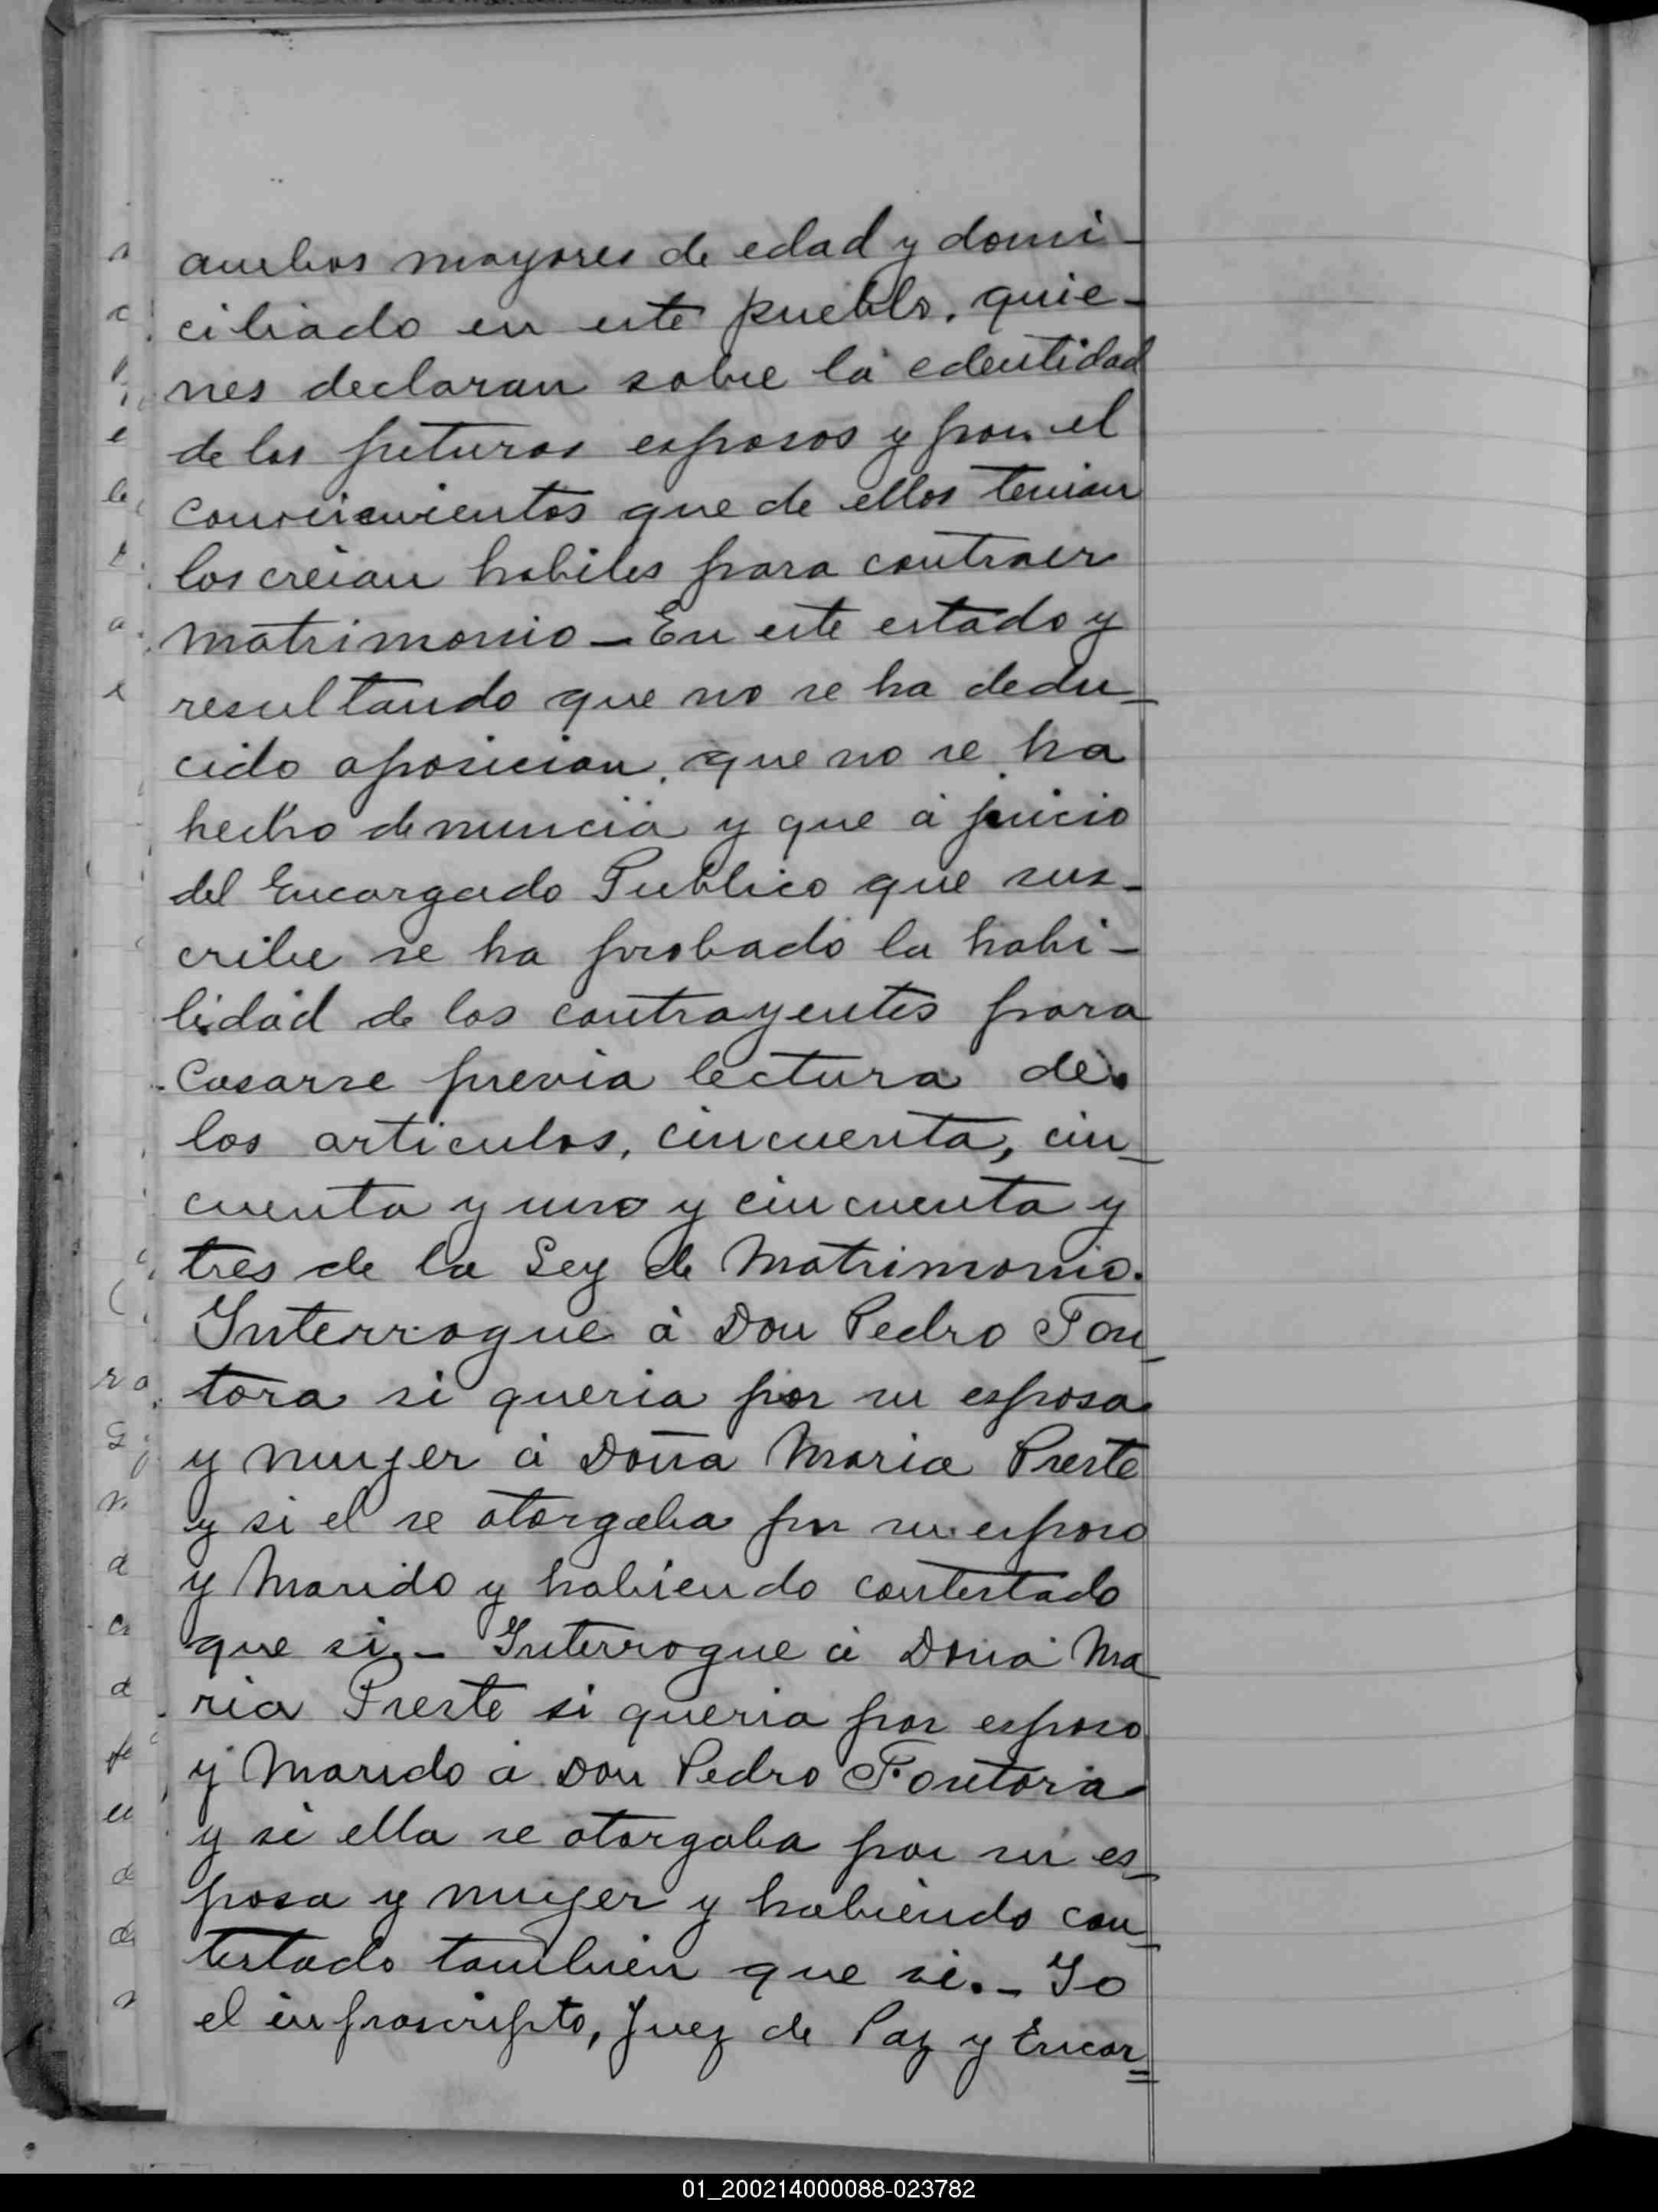 ambos mayores de edad y domi-
ciliado en este pueblo, quie-
nes declaran sobre la edentidad
de los futuros esposos y por el
conocimientos que de ellos tenian
los creian habiles para contraer
matrimonio - En este estado y
resultando que no se ha dedu-
cido oposicion, que no se ha
hecho denuncia y que á juicio
del Encargado Publico que sus-
cribe se ha probado la habi-
lidad de los contrayentes para
Casarse previa lectura de
los articulos, cincuenta, cin-
cuenta y uno y cincuenta y
tres de la Ley de Matrimonio.
Interrogue á Don Pedro Fon-
tora si queria por su esposa
y mujer á Doña Maria Preste
y si el se otorgaba por su esposo
y Marido y habiendo contestado
que si. - Interrogue á Doña Ma-
ria Preste si queria por esposo
y Marido á Don Pedro Fontora
y si ella se otorgaba por su es-
posa y mujer y habiendo con-
testado tambien que si. - Yo
el infrascripto, Juez de Paz y Encar=
01_200214000088-023782